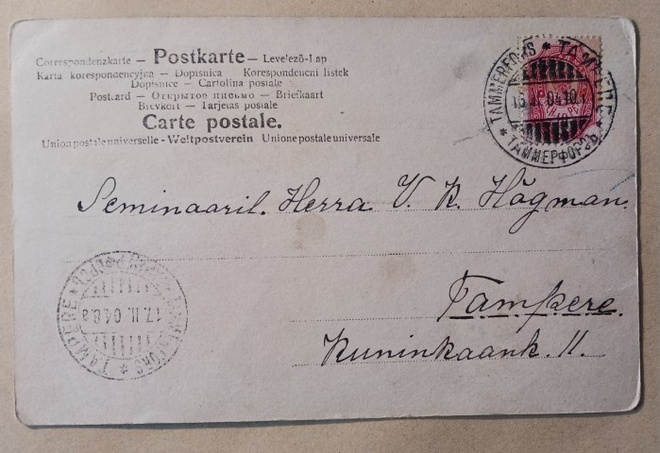 Correspondenzkarte – Postkarte – Levelező-Lap
Karta korespondencyjna – Dopisnica Korespondencni listek
Dopisnice – Cartolina postale
Postcard – Открытое письмо – Briefkaart
Brevkort – Tarjetas postale
Carte postale.
Union postale universelle - Weltpostverein Unione postale universale
TAMMERFORS * TAMPERE * ТАММЕРФОРСЪ
Seminaaril. Herra V. K. Hägman.
Tampere.
Kuninkaank. 11.
TAMPERE * TAMMERFORS *
17. II. 04. 8a